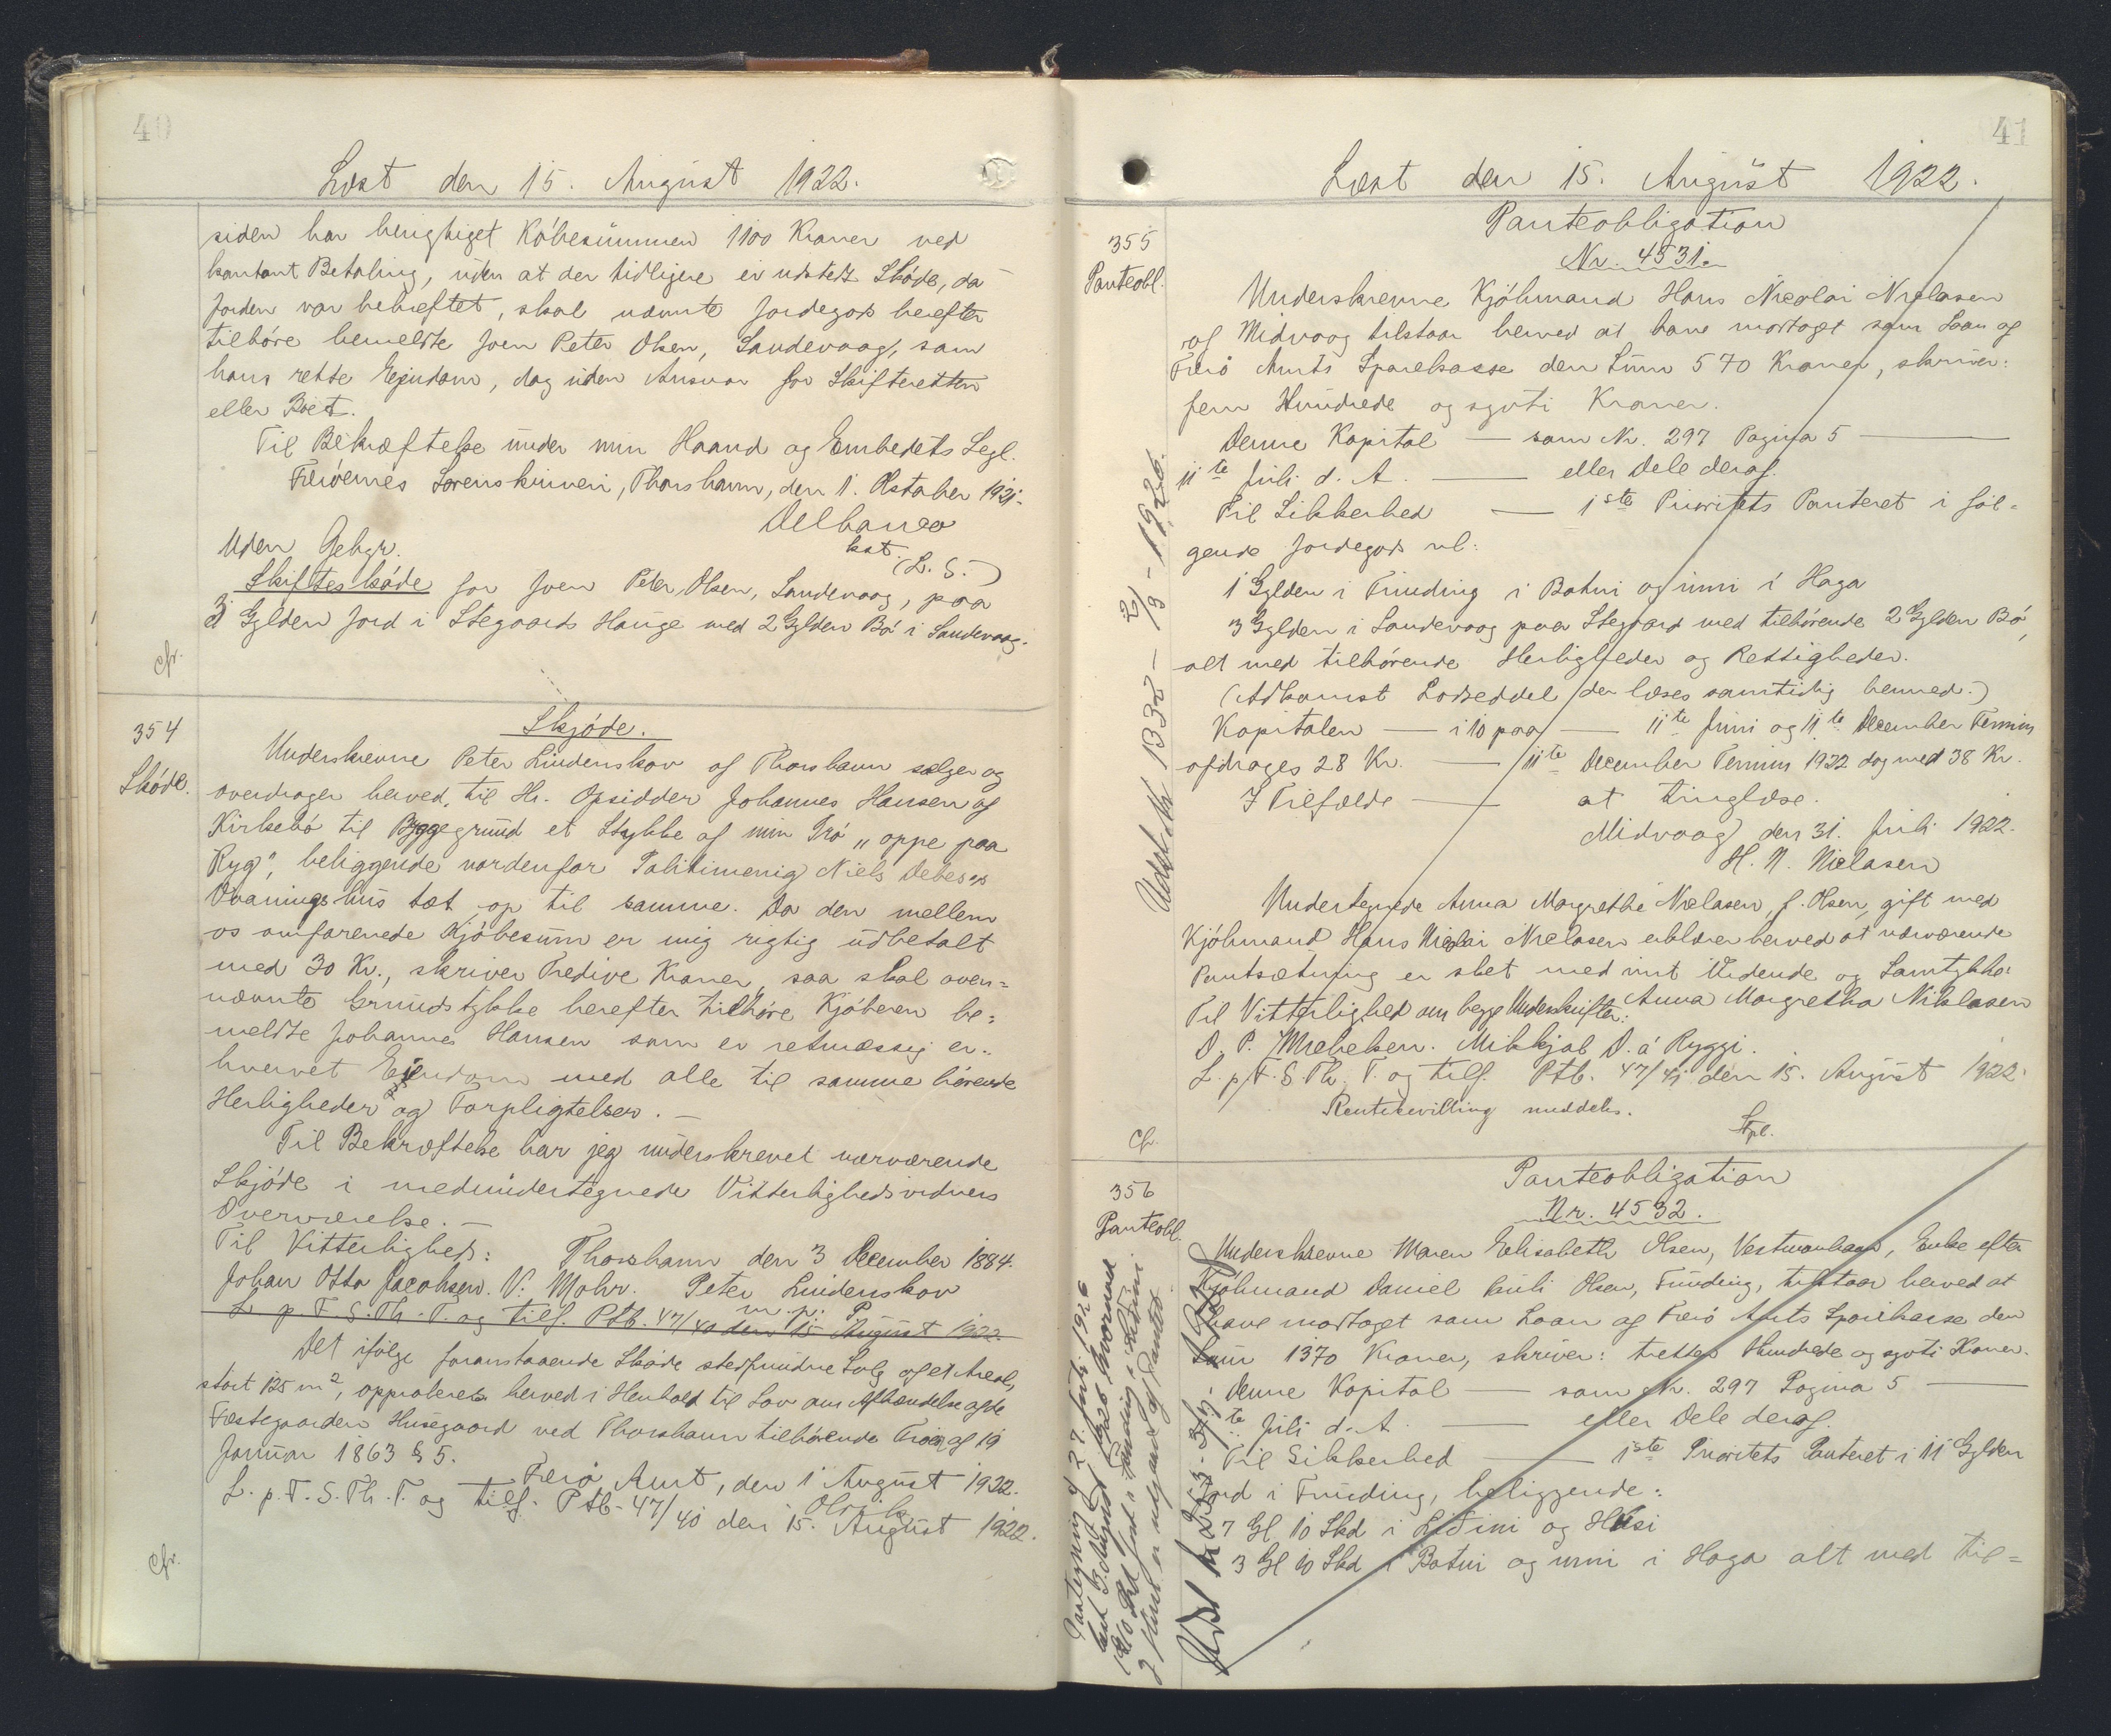 40
Læst den 15. August 1922.
siden har berigtiget Købesummen 1100 Kroner ved
kontant Betaling, uden at der tidligere er udstedt Skøde, da
Jorden var behæftet, skal nævnte Jordegods herefter
tilhøre bemeldte Joen Peter Olsen, Sandevaag, som
hans rette Ejendom, dog uden Ansvar for Skifteretten
eller Boet.
Til Bekræftelse under min Haand og Embedets Segl.
Færøernes Sorenskriveri, Thorshavn, den 1. Oktober 1921.
Delbanco
kst.
(L. S.)
Uden Gebyr.
Skifteskøde for Joen Peter Olsen, Sandevaag, paa
3 Gylden Jord i Stegaards Hauge med 2 Gylden Bø i Sandevaag.
Cfr.
354
Skøde.
Skjøde.
Underskrevne Peter Lindenskov af Thorshavn sælger og
overdrager herved til Hr. Opsidder Johannes Hansen af
Kirkebø til Byggegrund et Stykke af min Trø „oppe paa
Ryg", beliggende nordenfor Politimenig Niels Debeses
Vaaningshus tæt op til samme. Da den mellem
os omforenede Kjøbesum er mig rigtig udbetalt
med 30 Kr., skriver Tredive Kroner, saa skal oven=
nævnte Grundstykke herefter tilhøre Kjøberen be=
meldte Johannes Hansen som er retmæssig er=
hvervet Ejendom med alle til samme hørende
Herligheder og Forpligtelser. —
Til Bekræftelse har jeg underskrevet nærværende
Skjøde i medundertegnede Vitterlighedsvidners
Overværelse. —
Til Vitterlighed: Thorshavn den 3 December 1884.
Johan Otto Jacobsen. V. Mohr. Peter Lindenskov
m. p. P.
L. p. F. S. Th. T. og tilf. Ptb. 47/40 den 15 August 1922.
Det ifølge foranstaaende Skøde stedfundne Salg af et Areal,
stort 125 m², approberes herved i Henhold til Lov om Afhændelse af de
Fæstegaarden Husegaard ved Thorshavn tilhørende Trøer af 19
Januar 1863 § 5.
Færø Amt, den 1 August 1922.
L. p. F. S. Th. T. og tilf. Ptb. 47/40 den 15. August 1922.
Cfr.
41
Læst den 15. August 1922.
355
Panteobl.
Panteobligation
Nr. 4531.
Underskrevne Kjøbmand Hans Nicolai Nielasen
af Midvaag tilstaar herved at have modtaget som Laan af
Færø Amts Sparekasse den Sum 570 Kroner, skriver:
fem Hundrede og syvti Kroner.
Denne Kapital — som Nr. 297 Pagina 5 —
11te Juli d. A. — eller Dele deraf.
Til Sikkerhed — 1ste Prioritets Panteret i føl=
gende Jordegods nl:
1 Gylden i Funding i Botni og inni i Haga
3 Gylden i Sandevaag paa Stegaard med tilhørende 2 Gylden Bø,
alt med tilhørende Herligheder og Rettigheder.
(Adkomst Lodseddel der læses samtidig hermed.)
Kapitalen — i 10 paa — 11te Juni og 11te December Termin
afdrages 28 Kr. — 11te December Termin 1922 dog med 38 Kr.
I Tilfælde — at tinglæse.
Midvaag, den 31. Juli 1922.
H. N. Nielasen
Undertegnede Anna Margrethe Nielasen, f. Olsen, gift med
Kjøbmand Hans Nicolai Nielasen erklærer herved at nærværende
Pantsætning er sket med mit Vidende og Samtykke.
Til Vitterlighed om begge Underskrifter: Anna Margretha Niklasen
D. P. Michelsen. Mikkjal D. á Ryggi.
L. p. F. S. Th. T. og tilf. Ptb. 47/41 den 15. August 1922.
Rentebevilling meddeles.
Stpl.
Cfr.
Udsl. 1932 — 2/9 - 1926.
356
Panteobl.
Panteobligation
Nr. 4532.
Underskrevne Maren Elisabeth Olsen, Vestmanhavn, Enke efter
Kjøbmand Daniel Pauli Olsen, Funding, tilstaar herved at
have modtaget som Laan af Færø Amts Sparekasse den
Sum 1370 Kroner, skriver: tretten Hundrede og syvti Kroner.
Denne Kapital — som Nr. 297 Pagina 5 —
11te Juli d. A. — eller Dele deraf.
Til Sikkerhed — 1ste Prioritets Panteret i 11 Gylden
Jord i Funding, beliggende:
7 Gl. 10 Skd i Liðini og Húsi
3 Gl 10 Skd i Botni og inni i Haga alt med til=
Paategning af 27. Juli 1926
læst 3. August 1926 hvorved
Jord i Funding